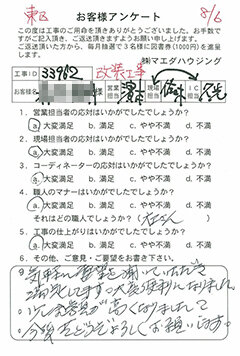 東区 お客様アンケート 8/6
この度は工事のご用命を頂きありがとうございました。お手数で
すがご記入頂き、ご返送頂きますようお願い申し上げます。
ご返送頂いた方から、毎月抽選で3名様に図書券(1000円)を進呈
します。
㈱マエダハウジング
工事ID 33962 改装工事
お客様名 営業担当 現場担当 IC担当
1. 営業担当者の応対はいかがでしたでしょうか?
a.大変満足 b.満足 c.やや不満 d.不満
2. 現場担当者の応対はいかがでしたでしょうか?
a.大変満足 b.満足 c.やや不満 d.不満
3. コーディネーターの応対はいかがでしたでしょうか?
a.大変満足 b.満足 c.やや不満 d.不満
4. 職人のマナーはいかがでしたでしょうか?
a.大変満足 b.満足 c.やや不満 d.不満
それはどの職人でしょうか?
5. 工事の仕上がりはいかがでしたでしょうか?
a.大変満足 b.満足 c.やや不満 d.不満
6. その他、ご意見・ご要望をお書き下さい。
満足してます。大変便利になりました。
高くなりましたして
今後もどうぞよろしくお願いします。